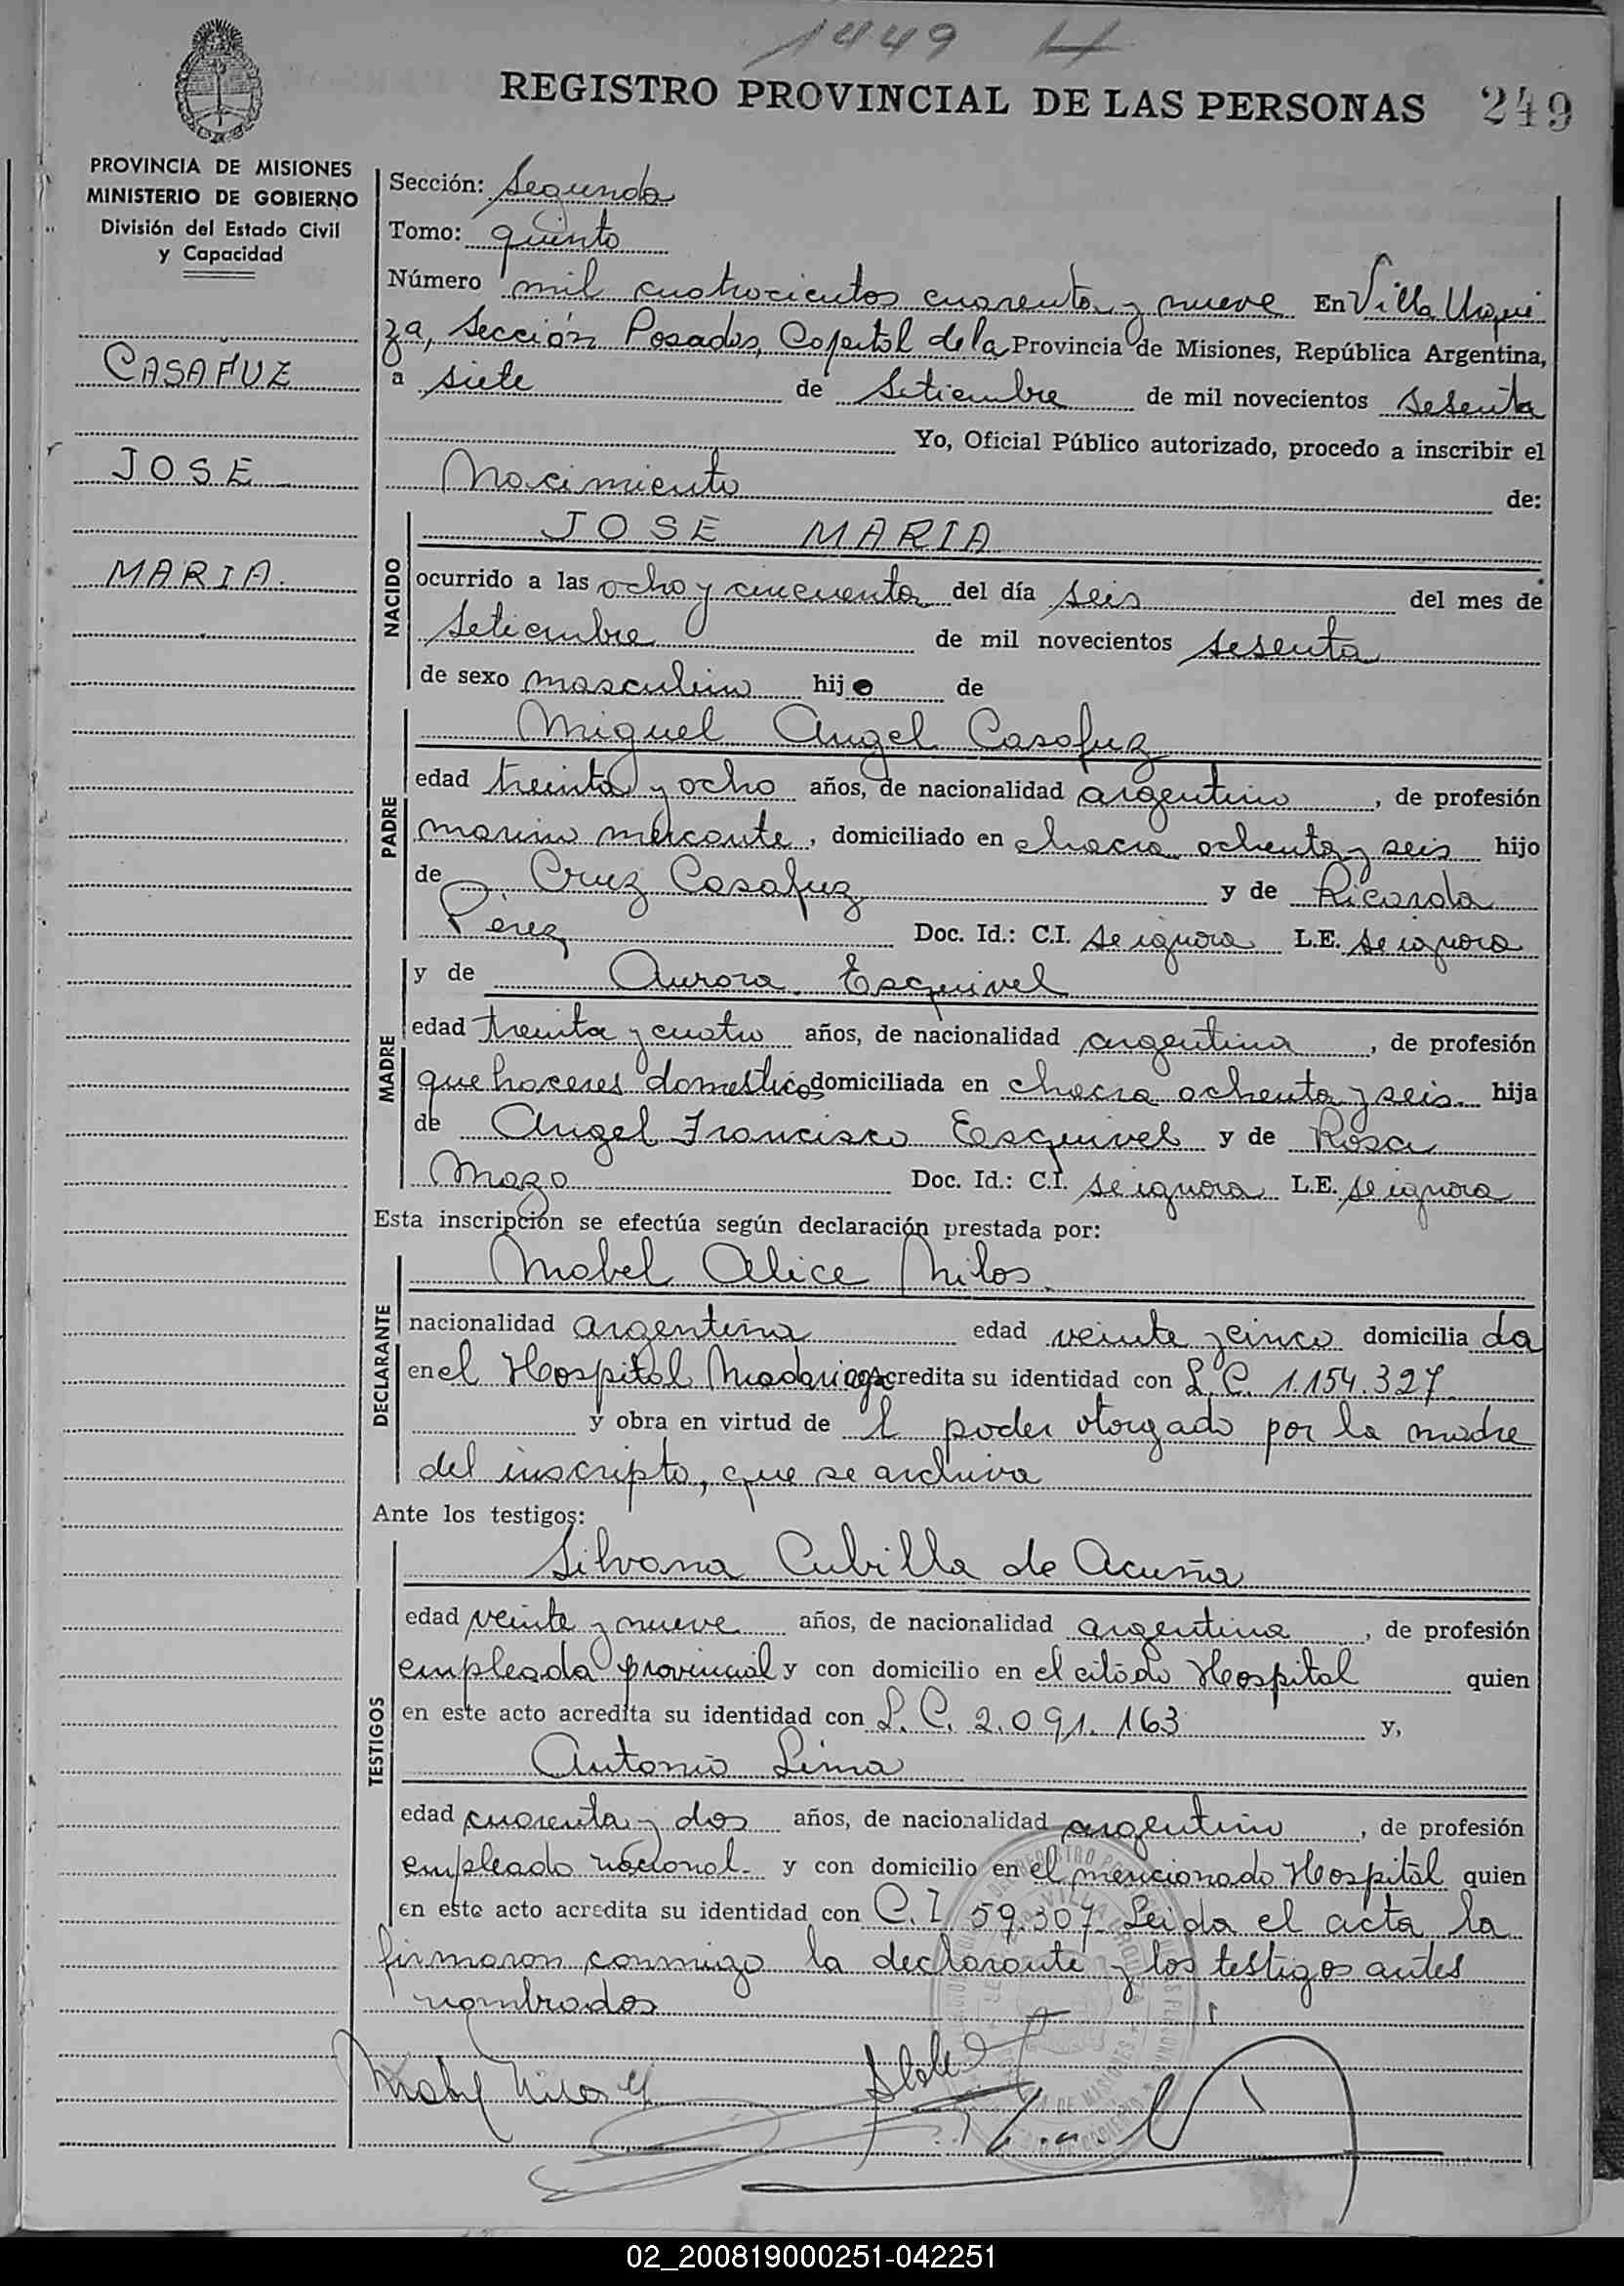 1449 H
REGISTRO PROVINCIAL DE LAS PERSONAS 249
PROVINCIA DE MISIONES
MINISTERIO DE GOBIERNO
División del Estado Civil
y Capacidad
CASAFUZ
JOSE
MARIA.
Sección: Segunda
Tomo: quinto
Número mil cuatrocientos cuarenta y nueve En Villa Urqui
za, Sección Posadas, Capital de la Provincia de Misiones, República Argentina,
a siete de Setiembre de mil novecientos sesenta
Yo, Oficial Público autorizado, procedo a inscribir el
Nacimiento de:
NACIDO
JOSE MARIA
ocurrido a las ocho y cincuenta del día seis del mes de
Setiembre de mil novecientos sesenta
de sexo masculino hijo de
PADRE
Miguel Angel Casafuz
edad treinta y ocho años, de nacionalidad argentino, de profesión
marino mercante, domiciliado en chacra ochenta y seis hijo
de Cruz Casafuz y de Ricarda
Pérez Doc. Id.: C.I. se ignora L.E. se ignora
MADRE
y de Aurora Esquivel
edad treinta y cuatro años, de nacionalidad argentina, de profesión
quehaceres domesticos domiciliada en chacra ochenta y seis. hija
de Angel Francisco Esquivel y de Rosa
Mazo Doc. Id.: C.I. se ignora L.E. se ignora
Esta inscripción se efectúa según declaración prestada por:
DECLARANTE
Mabel Alice Milos
nacionalidad argentina edad veinte y cinco domiciliada
en el Hospital Madariaga acredita su identidad con L.C. 1.154.327
y obra en virtud de l poder otorgado por la madre
del inscripto, que se archiva
Ante los testigos:
TESTIGOS
Silvana Cubilla de Acuña
edad veinte y nueve años, de nacionalidad argentina, de profesión
empleada provincial y con domicilio en el citado Hospital quien
en este acto acredita su identidad con L.C. 2.091.163 y,
Antonio Lima
edad cuarenta y dos años, de nacionalidad argentino, de profesión
empleado nacional y con domicilio en el mencionado Hospital quien
en este acto acredita su identidad con C.I 59.307 Leida el acta la
firmaron conmigo la declarante y los testigos antes
nombrados
02_200819000251-042251